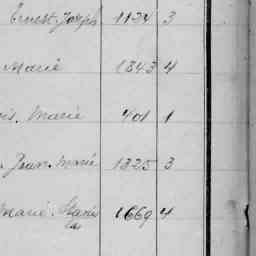 Ernest Joseph 1124 3
Marie 1343 4
is. Marie 401 1
Jean. Marie 1325 3
Marie. Stanis 1669 4
las